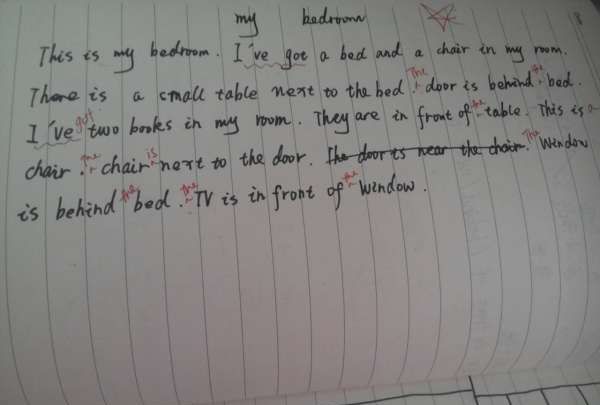 my bedroom
This is my bedroom. I've got a bed and a chair in my room.
There is a small table next to the bed. The door is behind the bed.
I've got two books in my room. They are in front of the table. This is a
chair. The chair is next to the door. The door is near the chair. The Window
is behind the bed. the TV is in front of the Window.